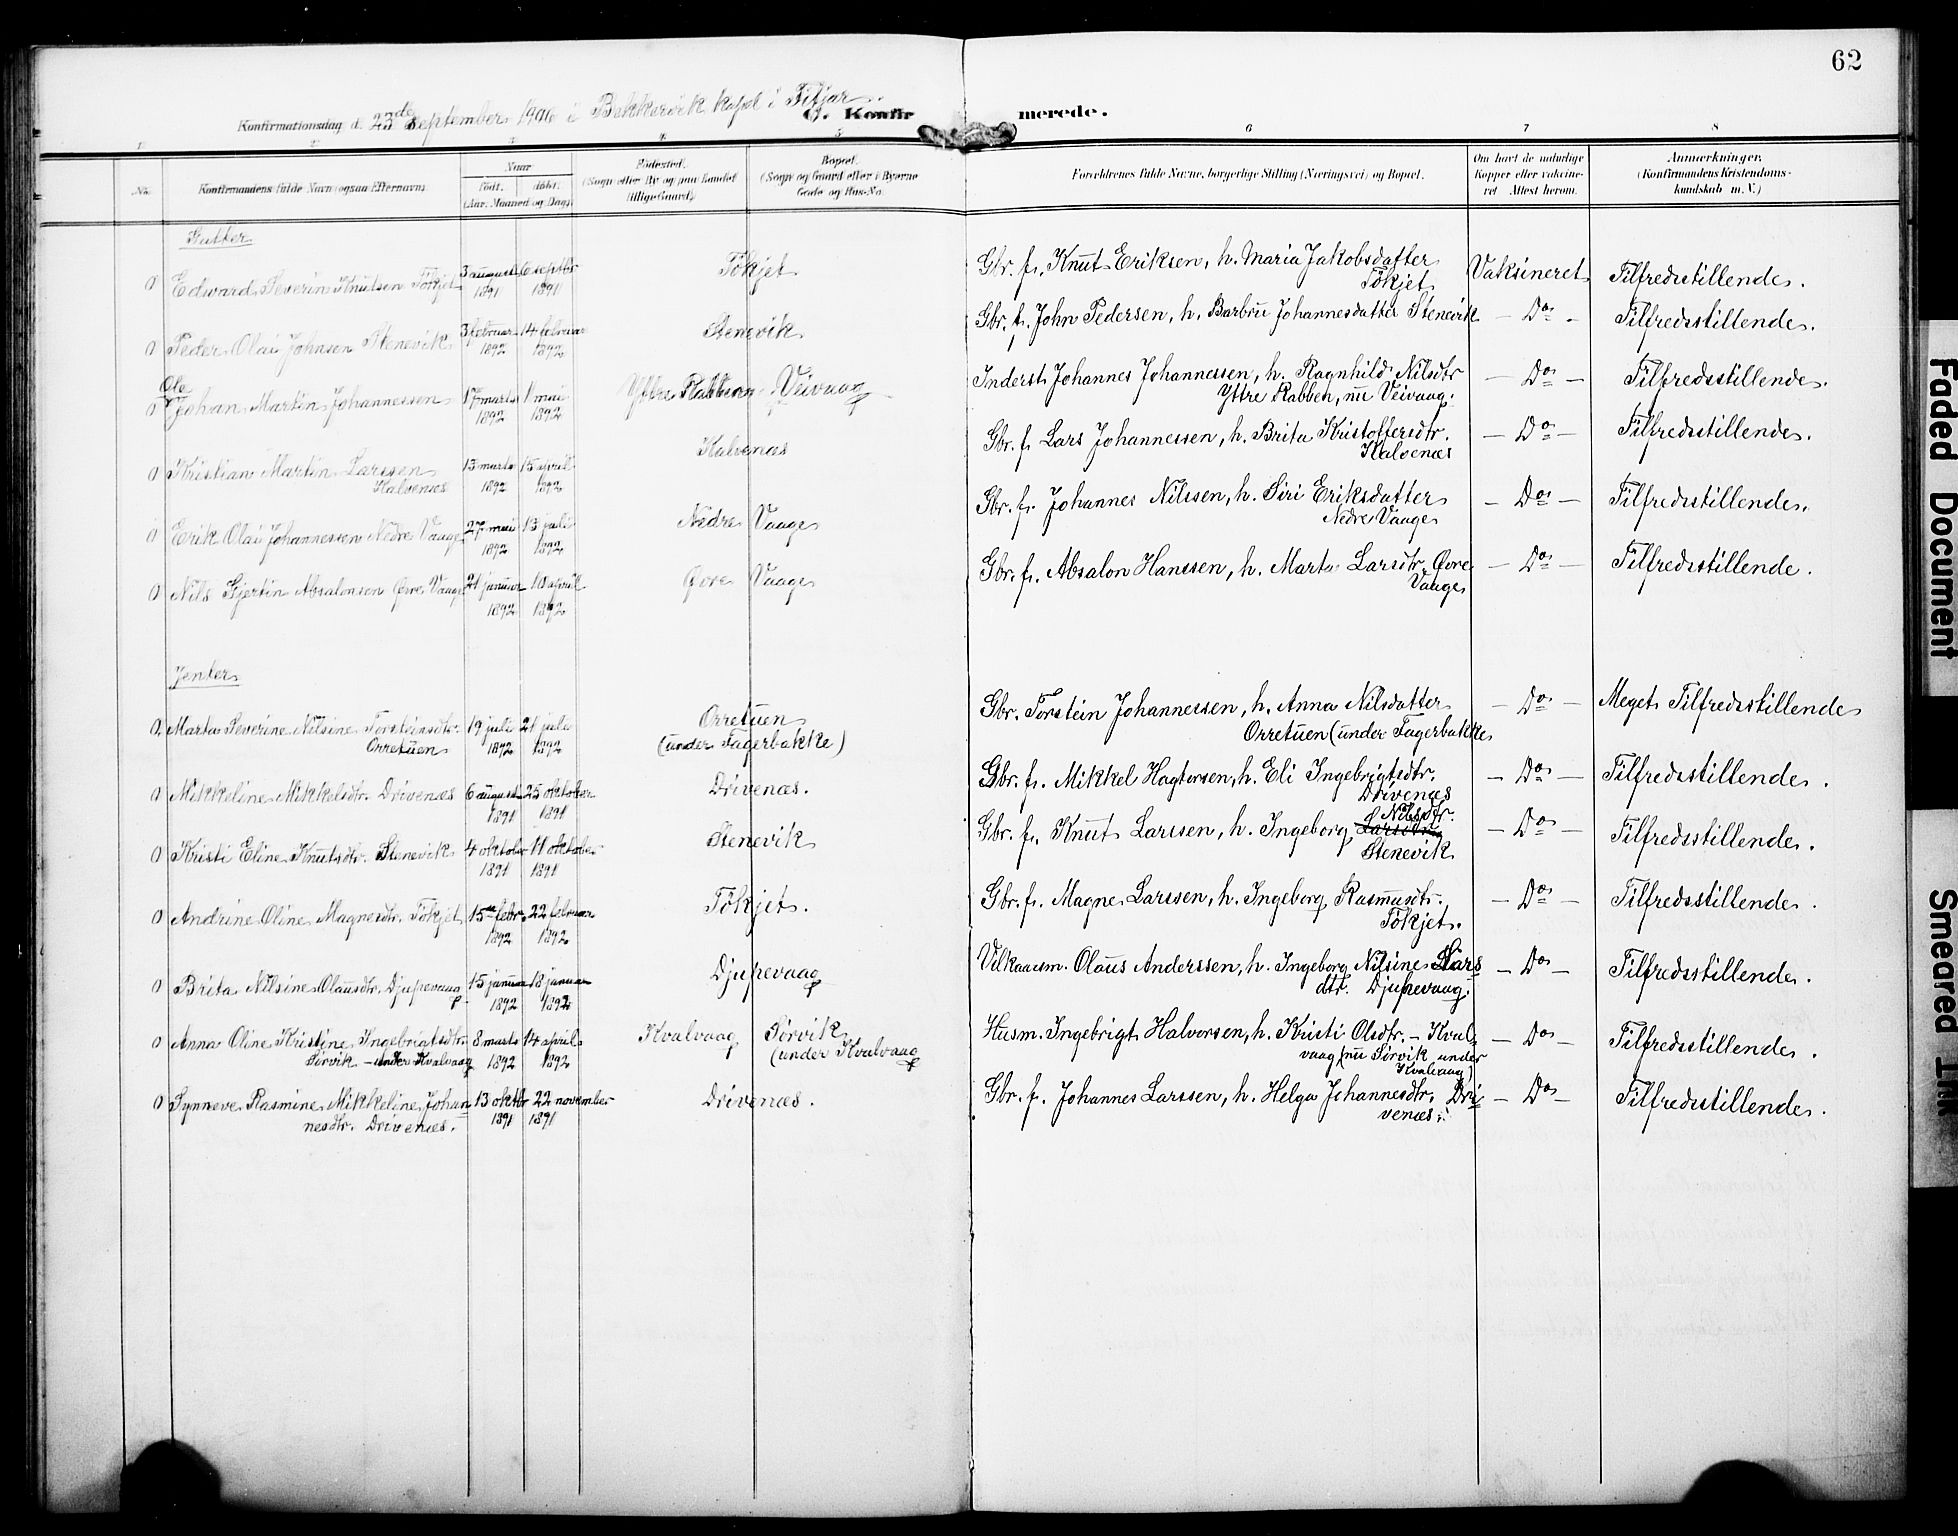 62
Konfirmationsdag d. 23de september 1906 i Bekkervik kapel i Fitjar.
C. Konfirmerede.
1 2 3 4 5 6 7 8
No.
Konfirmandens fulde Navn (ogsaa Efternavn).
Naar
født. døbt.
(Aar, Maaned og Dag).
Fødested.
(Sogn eller By og paa Landet
tillige Gaard).
Bopæl.
(Sogn og Gaard eller i Byerne
Gade og Hus-No.
Forældrenes fulde Navne, borgerlige Stilling (Næringsvei) og Bopæl.
Om havt de naturlige
Kopper eller vaksine-
ret Attest herom.
Anmærkninger.
(Konfirmandens Kristendoms-
kundskab m. V.)
Gutter
0 Edward Severin Knutsen Tökjet 3 august 6 septbr Tökjet Gbr. f. Knut Eriksen, h. Maria Jakobsdatter Vaksineret Tilfredsstillende.
1891 1891 Tökjet
0 Peder Olai Johnsen Stenevik 3 februar 14 februar Stenevik Gbr. f. John Pedersen, h. Barbru Johannesdatter Stenevik – Do – Tilfredsstillende.
1892 1892
Ole
0 Johan Martin Johannessen 17 marts 1 mai Yttre Rabben Veivaag Inderst Johannes Johannessen, h. Ragnhild Nilsdtr – Do – Tilfredsstillende.
1892 1892 Yttre Rabben, nu Veivaag.
0 Kristian Martin Larssen 13 marts 15 april Kalvenæs Gbr. f. Lars Johannessen, h. Brita Kristoffersdtr. – Do – Tilfredsstillende.
Kalvenæs 1892 1892 Kalvenæs
0 Erik Olai Johannessen Nedre Vaage 27 mai 13 juli Nedre Vaage Gbr. f. Johannes Nilssen, h. Siri Eriksdatter – Do – Tilfredsstillende.
1892 1892 Nedre Vaage
0 Nils Gjertin Absalonsen Øvre Vaage 21 januar 10 april Øvre Vaage Gbr. f. Absalon Hanssen, h. Marta Larsdtr. Øvre – Do – Tilfredsstillende.
1892 1892 Vaage
Jenter
0 Marta Severine Nilsine Torsteinsdtr. 19 juli 21 juli Orretuen Gbr. Torstein Johannessen, h. Anna Nilsdatter – Do – Meget Tilfredsstillende
Orretuen 1892 1892 (under Fagerbakke) Orretuen (under Fagerbakke
0 Mikkeline Mikkelsdtr. Drivenæs 6 august 25 oktober Drivenæs. Gbr. f. Mikkel Hagtorsen, h. Eli Ingebrigtsdtr. – Do – Tilfredsstillende.
1891 1891 Drivenæs
Nilsdtr.
0 Kristi Eline Knutsdtr. Stenevik 4 oktober 11 oktober Stenevik Gbr. f. Knut Larssen, h. Ingeborg – Do – Tilfredsstillende.
1891 1891 Stenevik
0 Andrine Oline Magnesdtr. Tökjet 15 febr. 22 februar Tökjet. Gbr. f. Magne Larssen, h. Ingeborg Rasmusdtr. – Do – Tilfredsstillende.
1892 1892 Tökjet.
0 Brita Nilsine Olausdtr. Djupevaag 15 januar 18 januar Djupevaag Vilkaarsm. Olaus Anderssen, h. Ingeborg Nilsine Lars – Do – Tilfredsstillende.
1892 1892 dtr. Djupevaag.
0 Anna Oline Kristine Ingebrigtsdtr. 8 marts 14 april Kvalvaag Sørvik Husm. Ingebrigt Halvorsen, h. Kristi Olsdtr. – Kval- – Do – Tilfredsstillende.
Sørvik – under Kvalvaag 1892 1892 (under Kvalvaag vaag (nu Sørvik under
Kvalvaag)
0 Synneve Rasmine Mikkeline Johan 13 oktbr 22 november Drivenæs. Gbr. f. Johannes Larssen, h. Helga Johannesdtr. Dri – Do – Tilfredsstillende.
nesdtr. Drivenæs. 1891 1891 venæs.
Faded Document
Smeared Ink